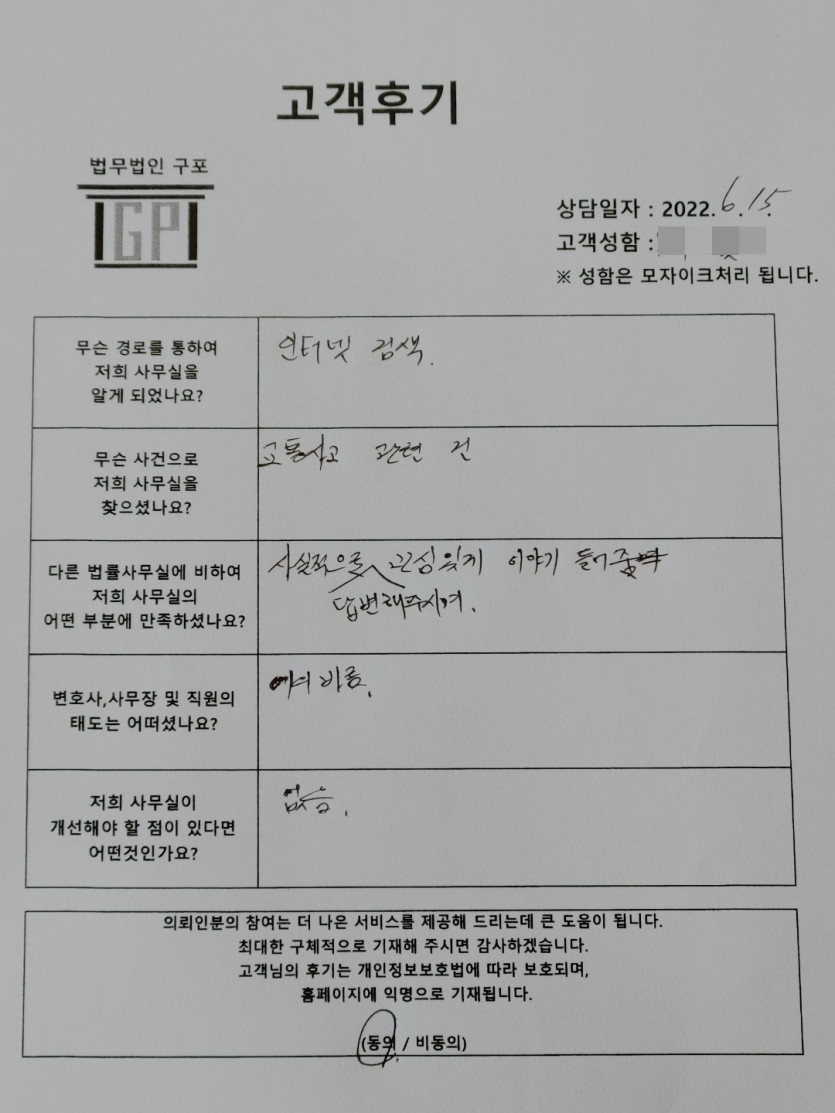 고객후기
법무법인 구포
IGPI
상담일자 : 2022. 6. 15.
고객성함 :
※ 성함은 모자이크처리 됩니다.
무슨 경로를 통하여
저희 사무실을
알게 되었나요?
인터넷 검색.
무슨 사건으로
저희 사무실을
찾으셨나요?
교통사고 관련 건
다른 법률사무실에 비하여
저희 사무실의
어떤 부분에 만족하셨나요?
사실적으로 관심있게 이야기 들어줌
답변해주시며.
변호사,사무장 및 직원의
태도는 어떠셨나요?
바름.
저희 사무실이
개선해야 할 점이 있다면
어떤것인가요?
없음.
의뢰인분의 참여는 더 나은 서비스를 제공해 드리는데 큰 도움이 됩니다.
최대한 구체적으로 기재해 주시면 감사하겠습니다.
고객님의 후기는 개인정보보호법에 따라 보호되며,
홈페이지에 익명으로 기재됩니다.
(동의 / 비동의)